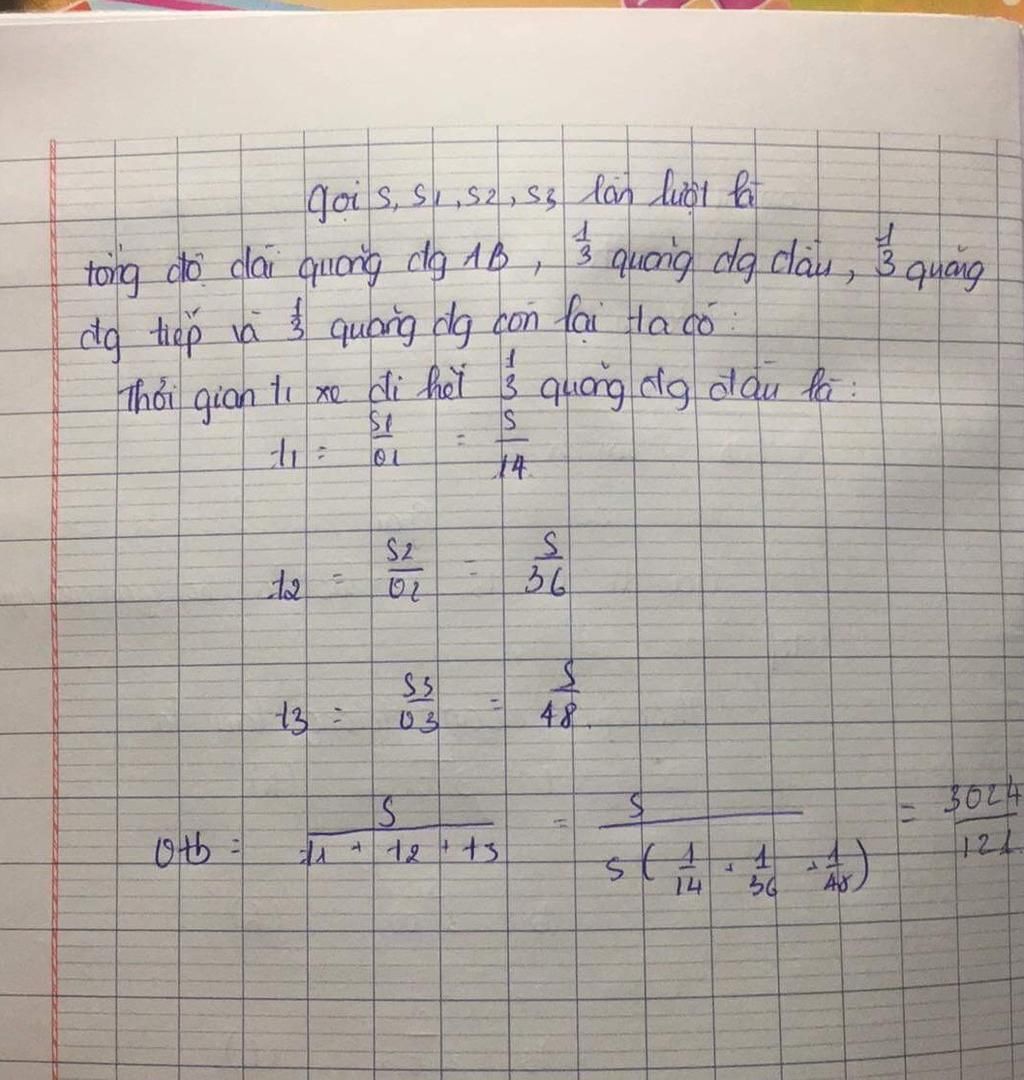 gọi s, s1, s2, s3 lần lượt là
tổng độ dài quãng đg AB, 1/3 quãng đg đầu, 1/3 quãng
đg tiếp và 1/3 quãng đg còn lại ta có:
Thời gian t1 xe đi hết 1/3 quãng đg đầu là:
t1 = s1/v1 = s/14
t2 = s2/v2 = s/36
t3 = s3/v3 = s/48.
vtb = s/(t1 + t2 + t3) = s/(s(1/14 + 1/36 + 1/48)) = 3024/121